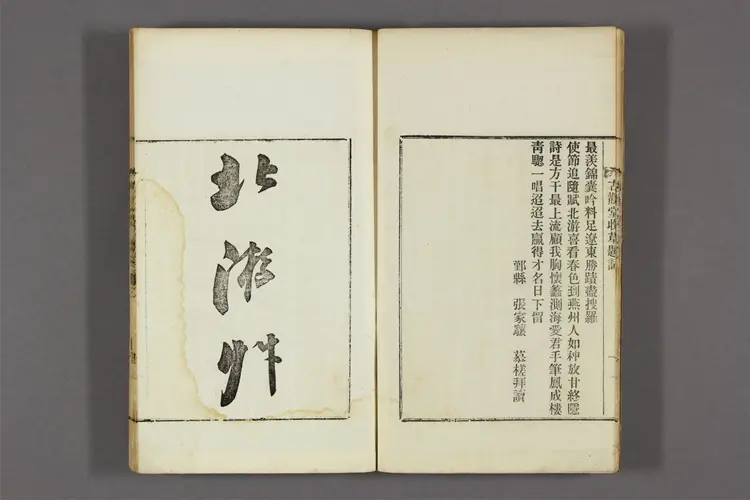 最羨錦囊吟料足遼東勝蹟盡搜羅
使節追隨賦北游喜看春色到燕州人如种放甘終隱
詩是方干最上流願我胸懷蠡測海愛君手筆鳳成樓
靑驄一唱迢迢去贏得才名日下留
鄞縣 張家驤 慕槎拜讀
北游艸